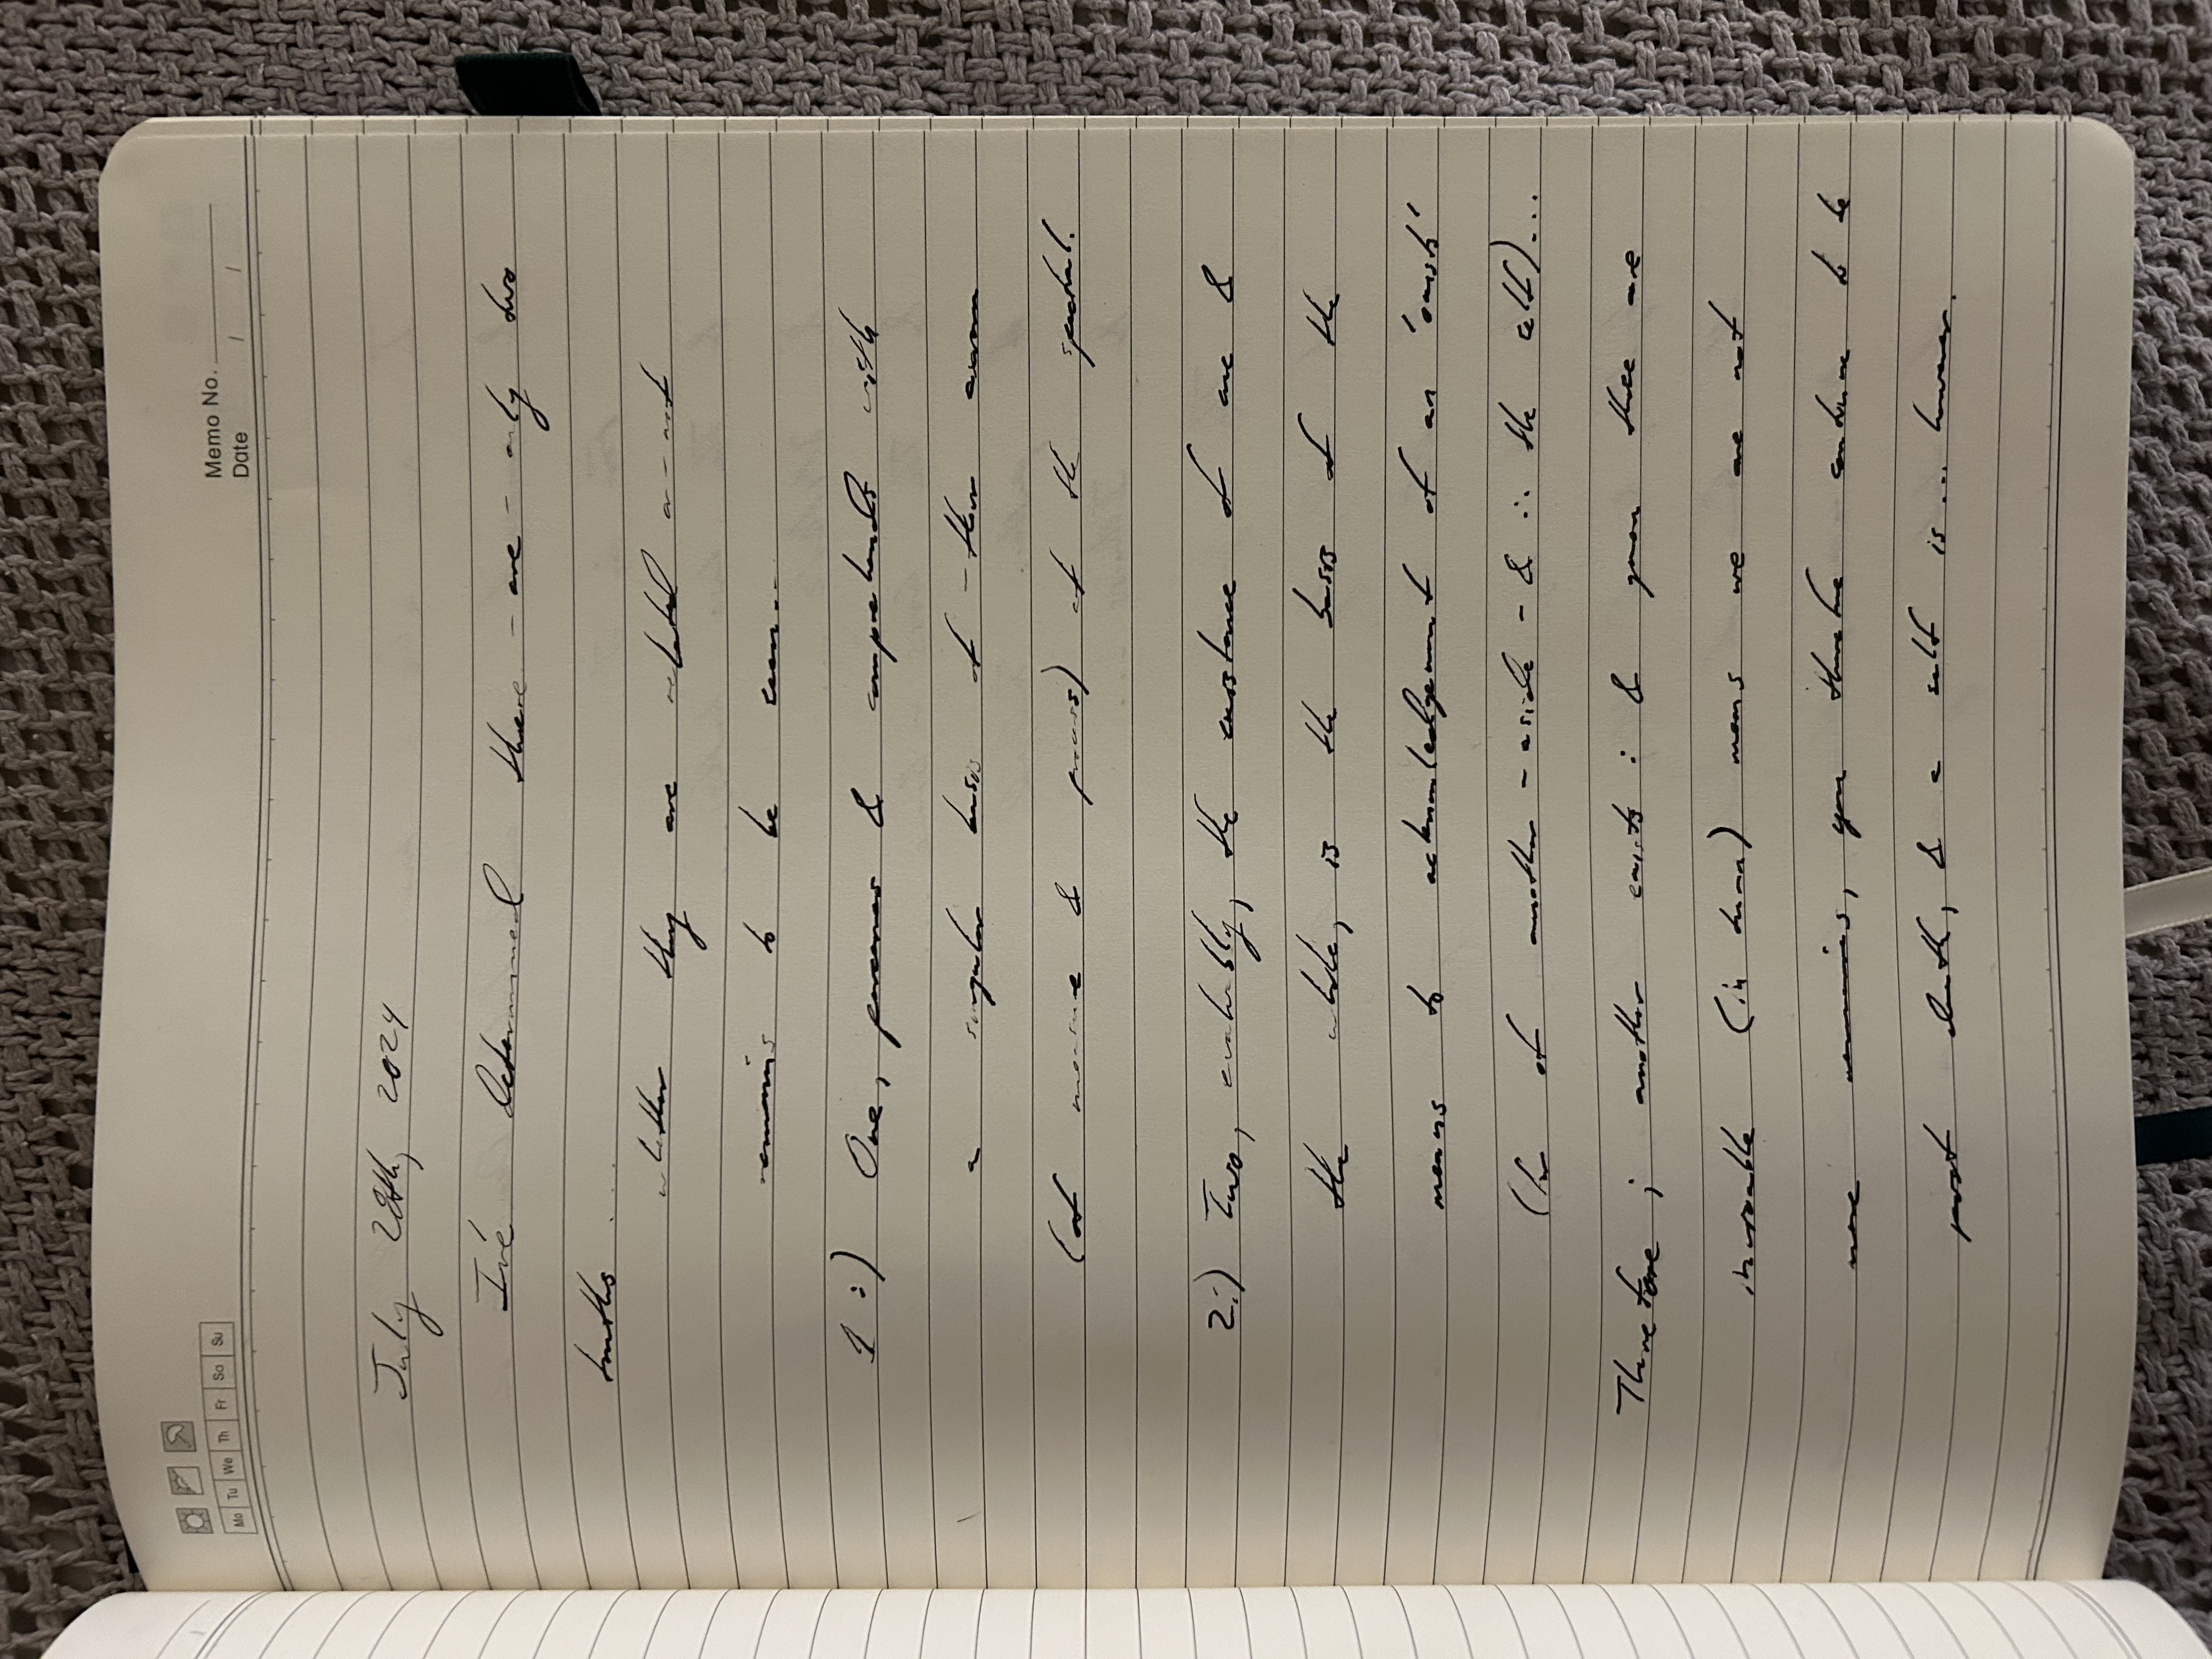 Memo No.
Mo Tu We Th Fr Sa Su
Date / /
July 28th, 2024
I've determined there - are - only two
truths.....
whether they are related or - not
remains to be seen...
1:) One, perceives & comprehends with
a singular basis of - their own
(of measure & process) of the spectral.
2:) Two, evidently, the existence of one &
the whole, is the basis of the
means to acknowledgement of an 'ounish'
(in of another - aside - & ∴ the elt)...
Therefore; another exists: & given there are
invariable (in turn) means we are not
one remains, you therefore continue to be
past death, & a self is... however.